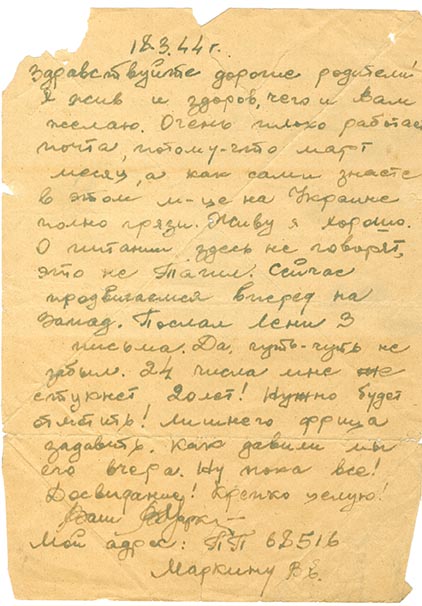 18.3.44 г.
Здравствуйте дорогие родители!
Я жив и здоров, чего и Вам
желаю. Очень плохо работает
почта, потому-что март
месяц, а как сами знаете
в этом м-це на Украине
полно грязи. Живу я хорошо.
О питании здесь не говорят,
это не Тагил. Сейчас
продвигаемся вперед на
Запад. Послал Лени 3
письма. Да, чуть-чуть не
забыл. 24 числа мне же
стукнет 20 лет! Нужно будет
отметить! Лишнего фрица
задавить. Как давили мы
его вчера. Ну пока все!
Досвидание! Крепко целую!
Ваш
Мой адрес: ПП 68516
Маркину В.Е.